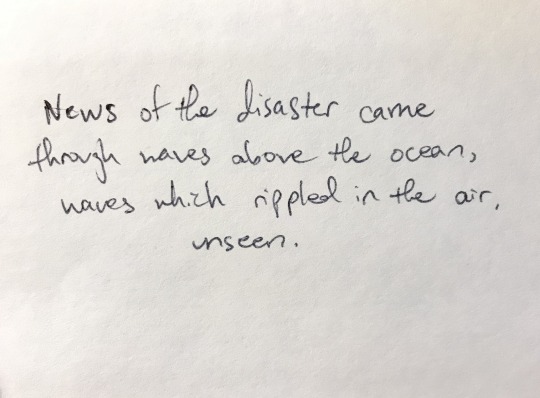 News of the disaster came
through waves above the ocean,
waves which rippled in the air,
unseen.